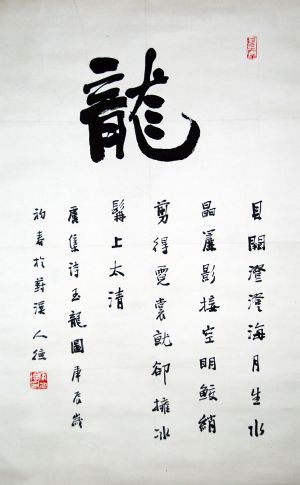 龍
貝闕澄澄海月生水
晶簾影接空明鮫綃
剪得霓裳就卻擁冰
鬟上太清
虞集詩玉龍圖庚辰歲
初春於溪人